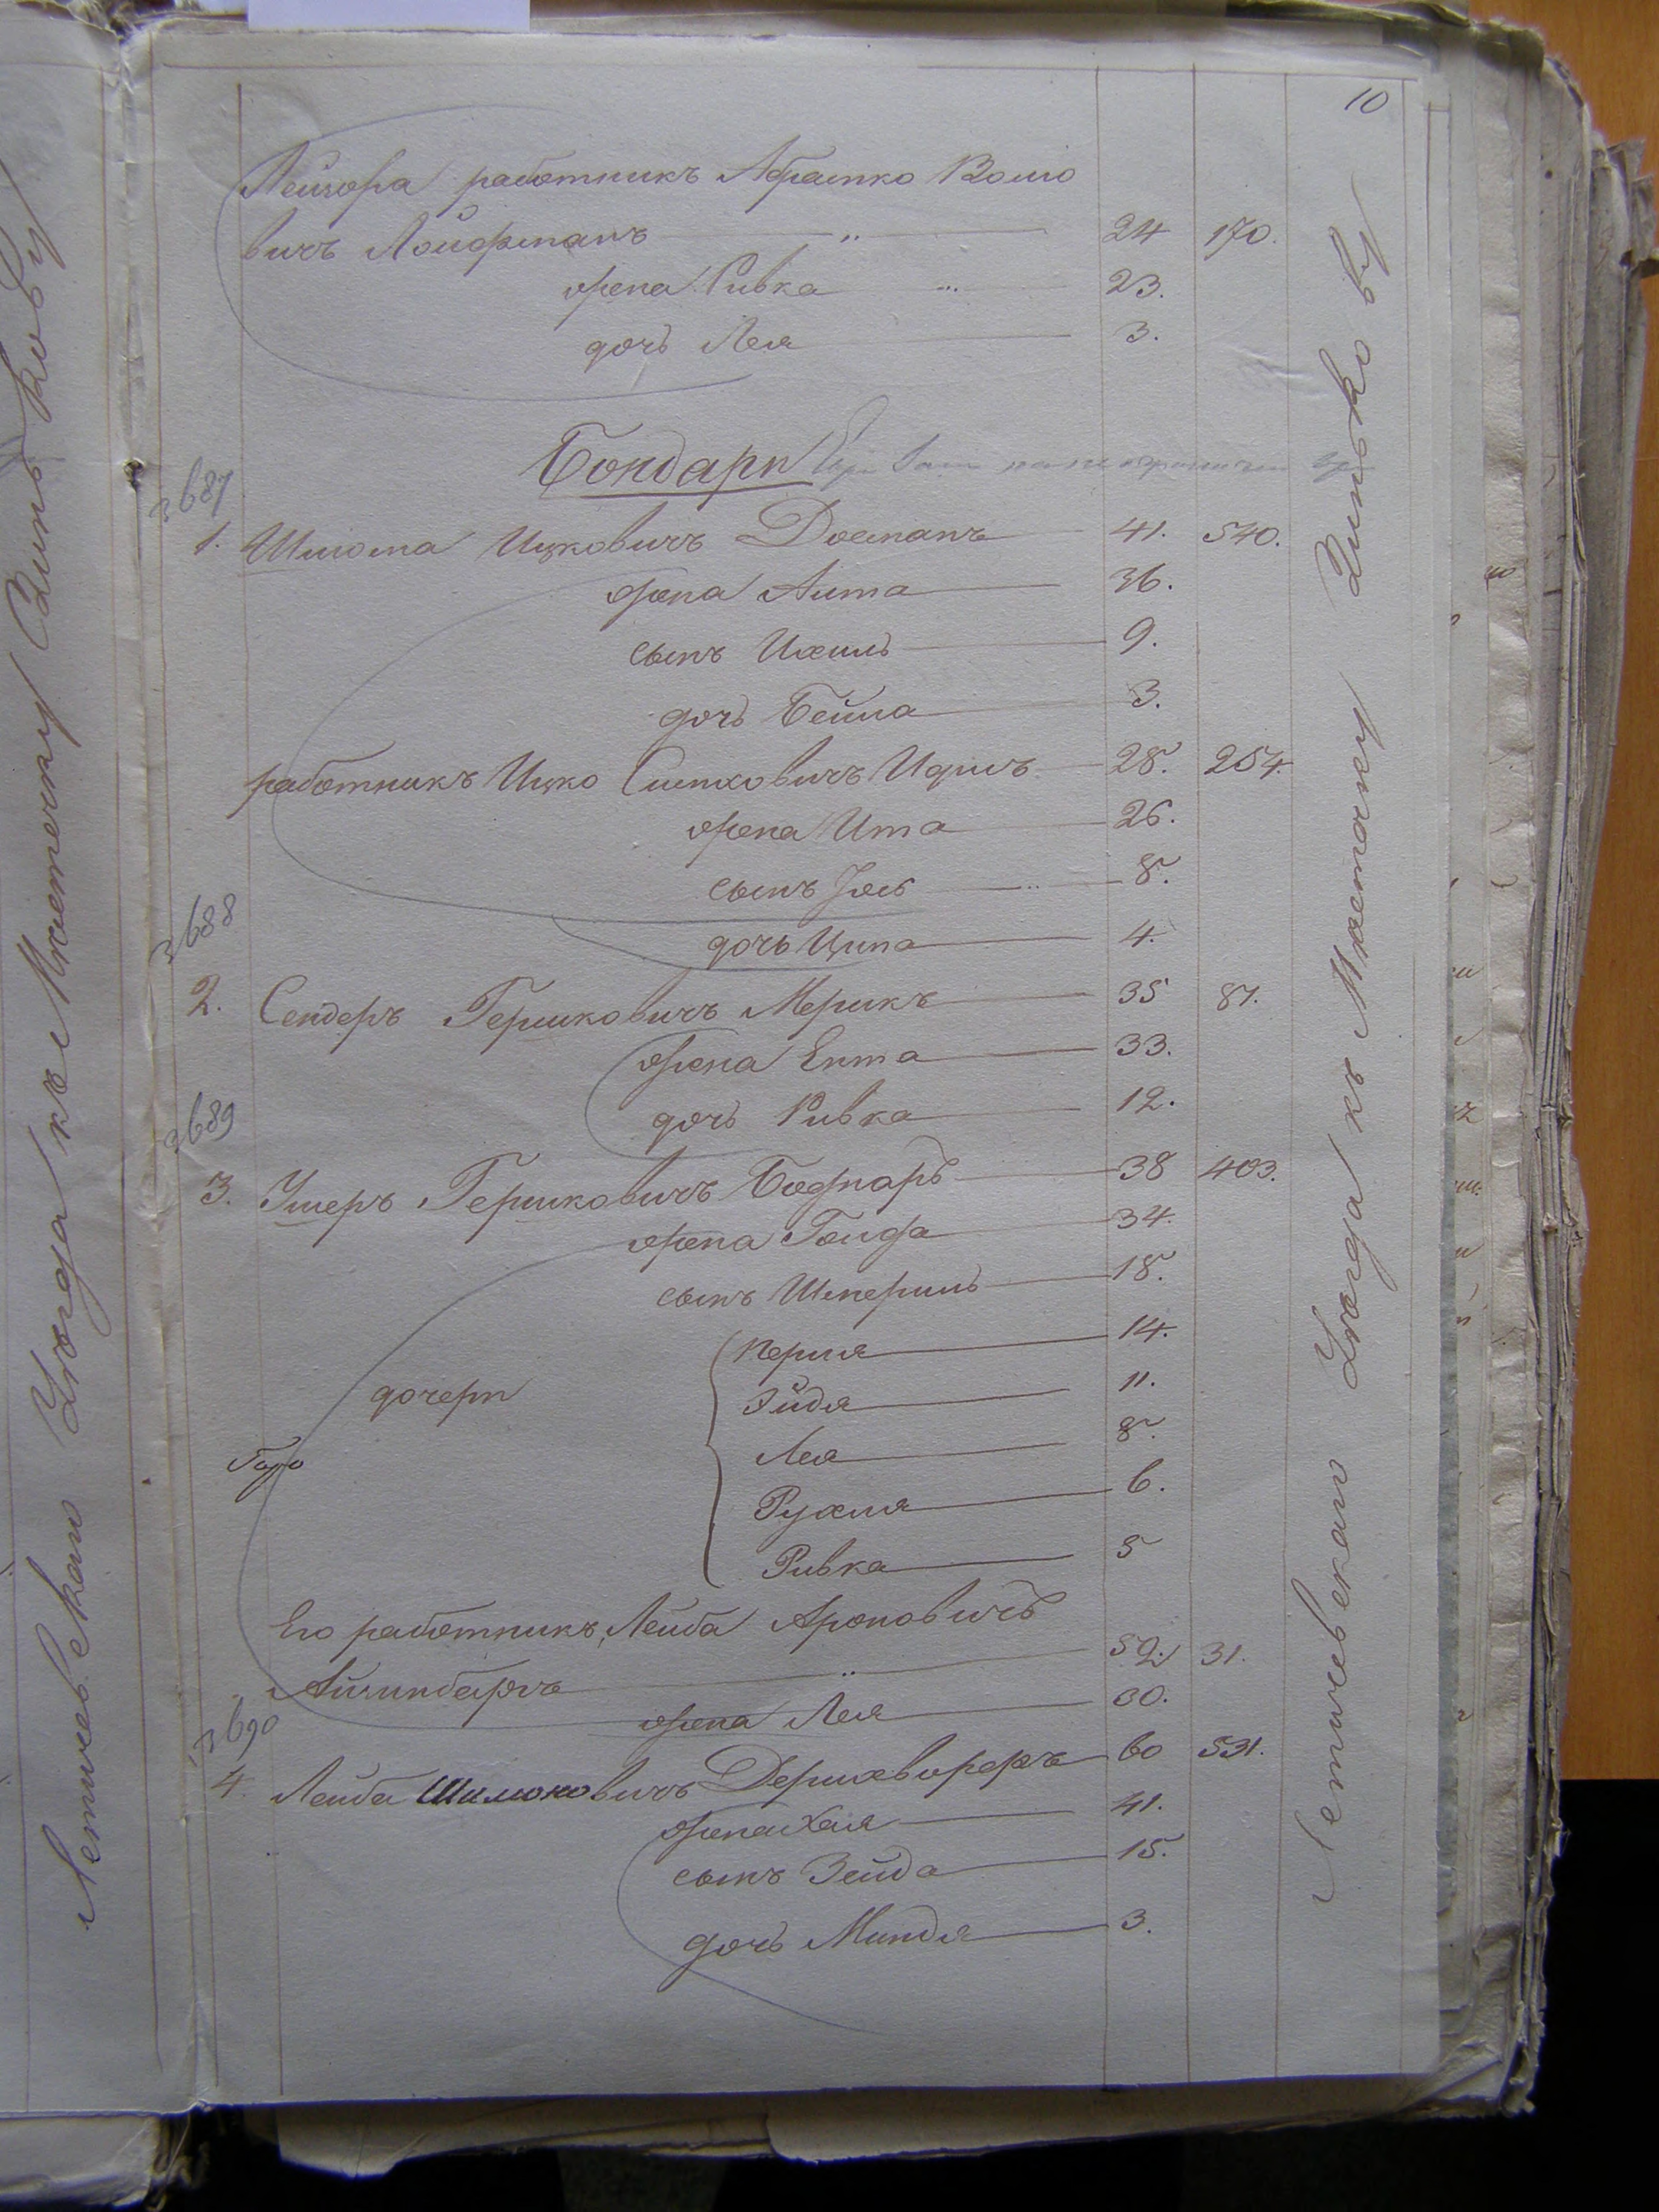 10
Лейзора работникъ Абрамко Волко
вичъ Лойфманъ 24 170.
жена Ривка 23.
дочь Лея 3.
Бондари
3687
1. Шлома Ицковичъ 41. 540.
жена Анта 36.
сынъ Ихиль 9.
дочь Бейла 3.
работникъ Ицко 28. 254.
жена Ита 26.
сынъ 8.
3688
дочь Ципа 4.
2. Сендеръ Гершковичъ Мерикъ 35 87.
жена Ента 33.
3689
дочь Ривка 12.
3. Ушеръ Гершковичъ Боднаръ 38 403.
жена Гольда 34.
сынъ Шмериль 18.
дочери
Перля 14.
Эйдя 11.
Лея 8.
Рухля 6.
Ривка 5
Его работникъ, Лейба Ароновичъ
52. 31.
жена Лея 30.
3690
4. Лейба Шилюковичъ 60 531.
жена Хая 41.
сынъ Зейда 15.
дочь Миндя 3.
Летичевскаго Уѣзда къ Мѣстечку Зинькову
Летичевскаго Уѣзда къ Мѣстечку Зинькову